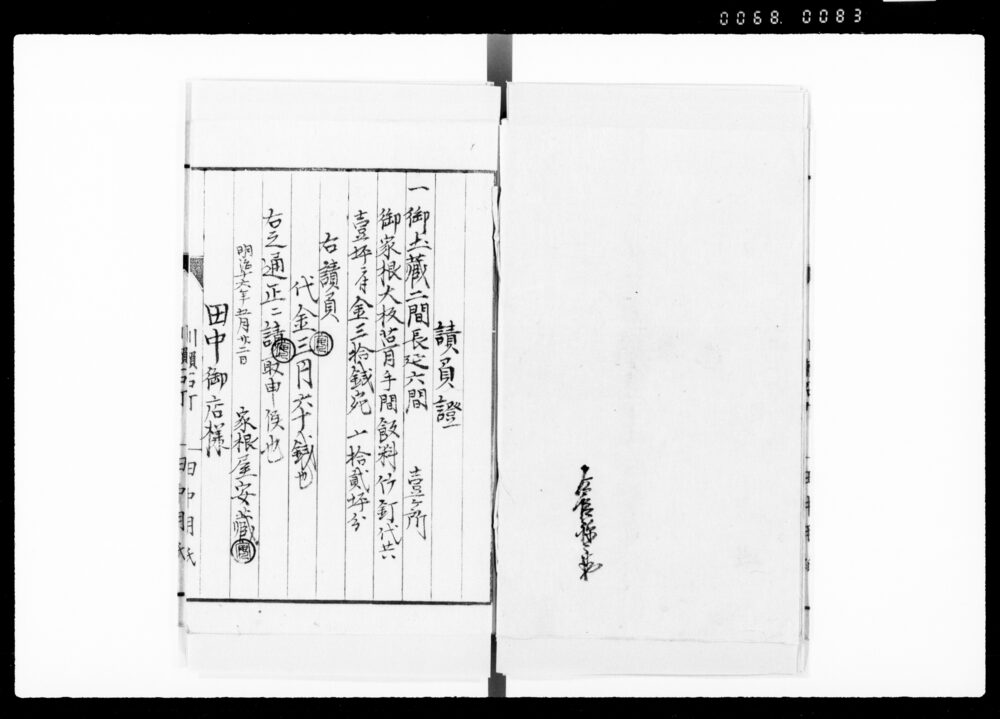 0068. 0083
請負證
一御土藏二間長延六間 壹ヶ所
御家根大板笘月手間飯料竹釘代共
壹坪ニ付金三拾銭宛 〆拾貳坪分
右請負
代金三円六十銭也
右之通正ニ請取申候也
明治十六年五月廿二日 家根屋安藏
田中御店様